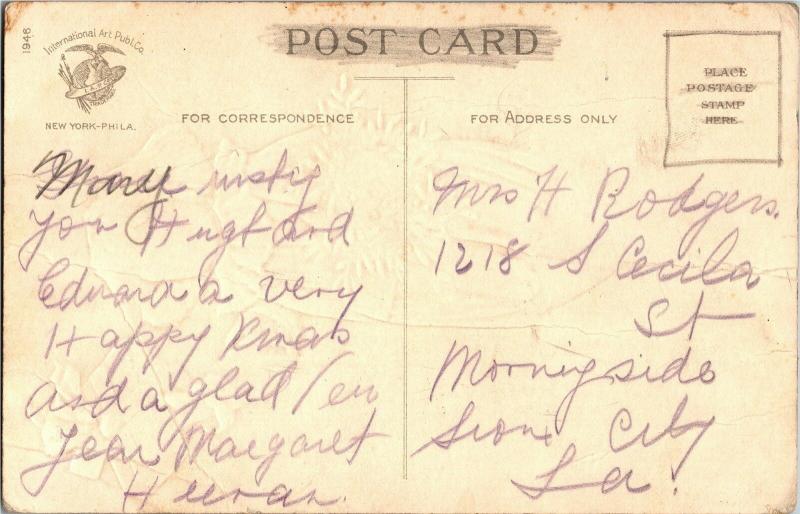 1946
International Art Publ. Co.
NEW YORK-PHILA.
POST CARD
PLACE
POSTAGE
STAMP
HERE
FOR CORRESPONDENCE
FOR ADDRESS ONLY
Mary
you Hugh and
Edward a very
Happy Xmas
and a glad New
Year Margaret
Mrs H Rodgers.
1218 S Cecila
St
Morningside
Sioux City
Ia.